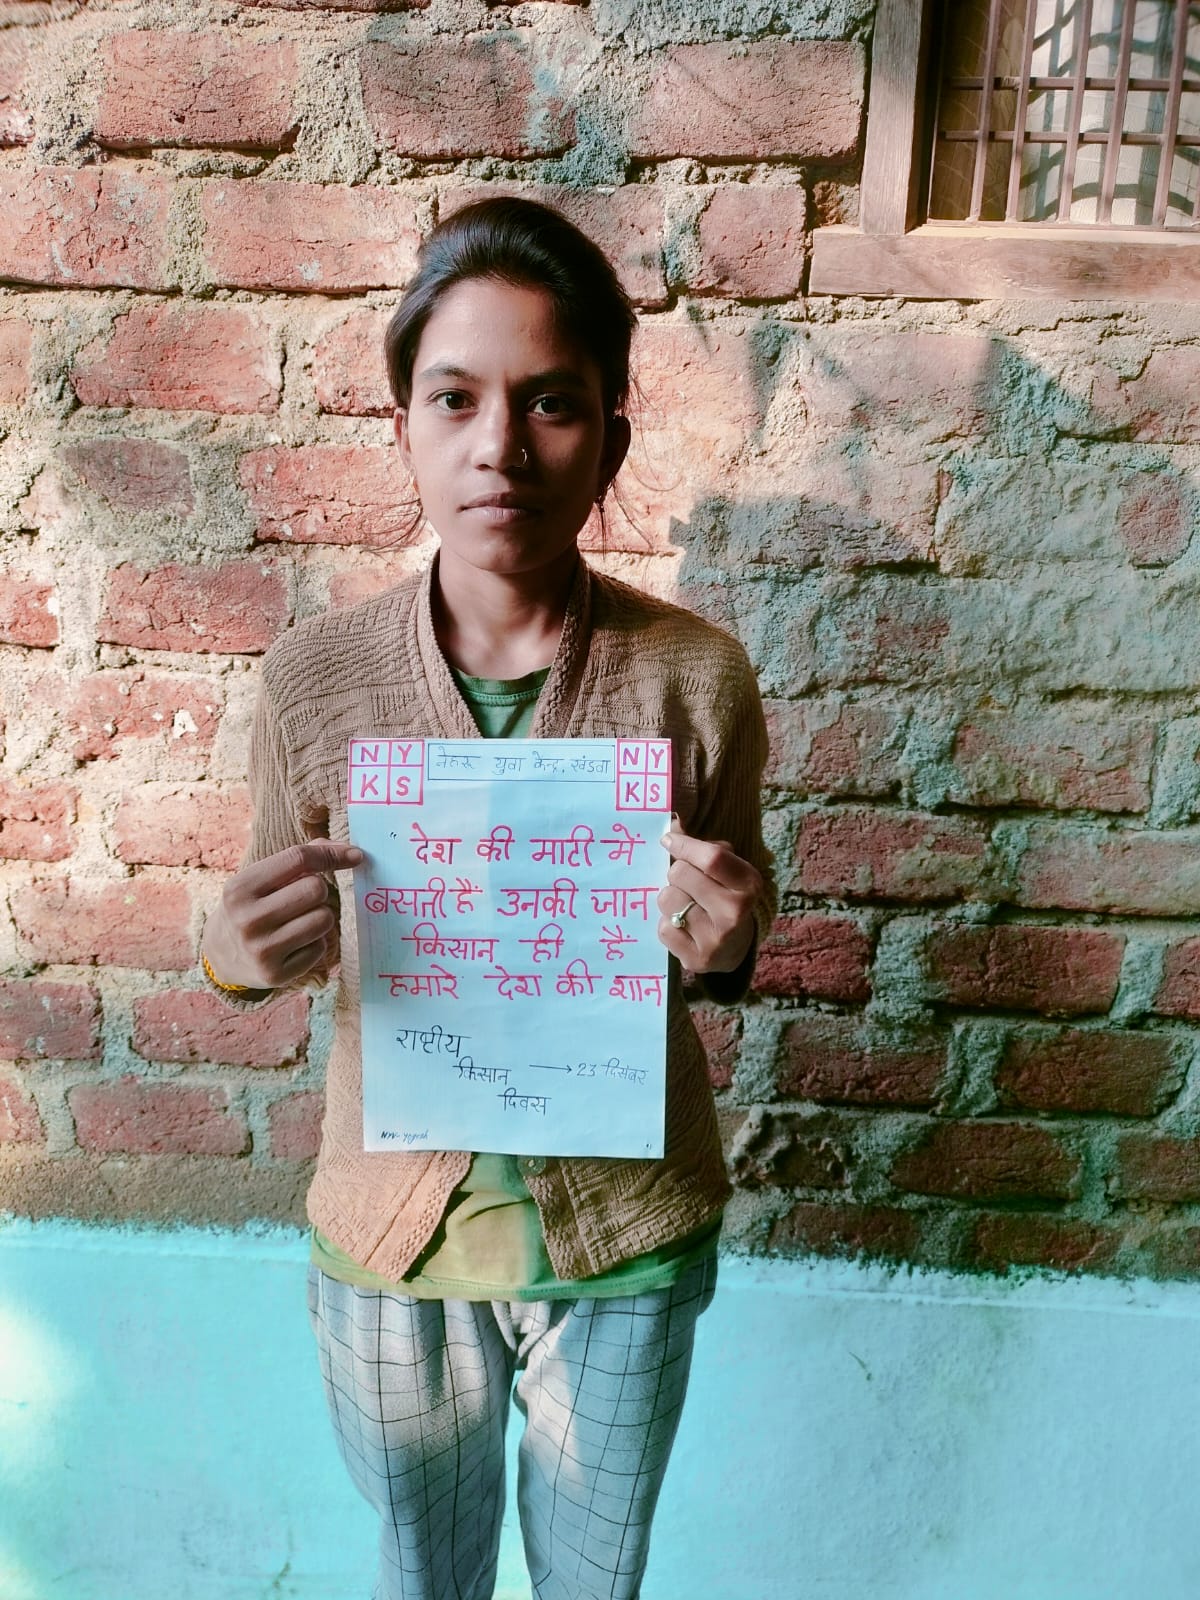 N Y
K S
नेहरू युवा केन्द्र, खंडवा
N Y
K S
" देश की माटी में
बसती हैं उनकी जान
किसान ही हैं
हमारे देश की शान
राष्ट्रीय
किसान → 23 दिसंबर
दिवस
NYV- Yogesh